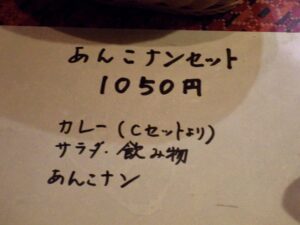 あんこナンセット
1050円
カレー(Cセットより)
サラダ・飲み物
あんこナン